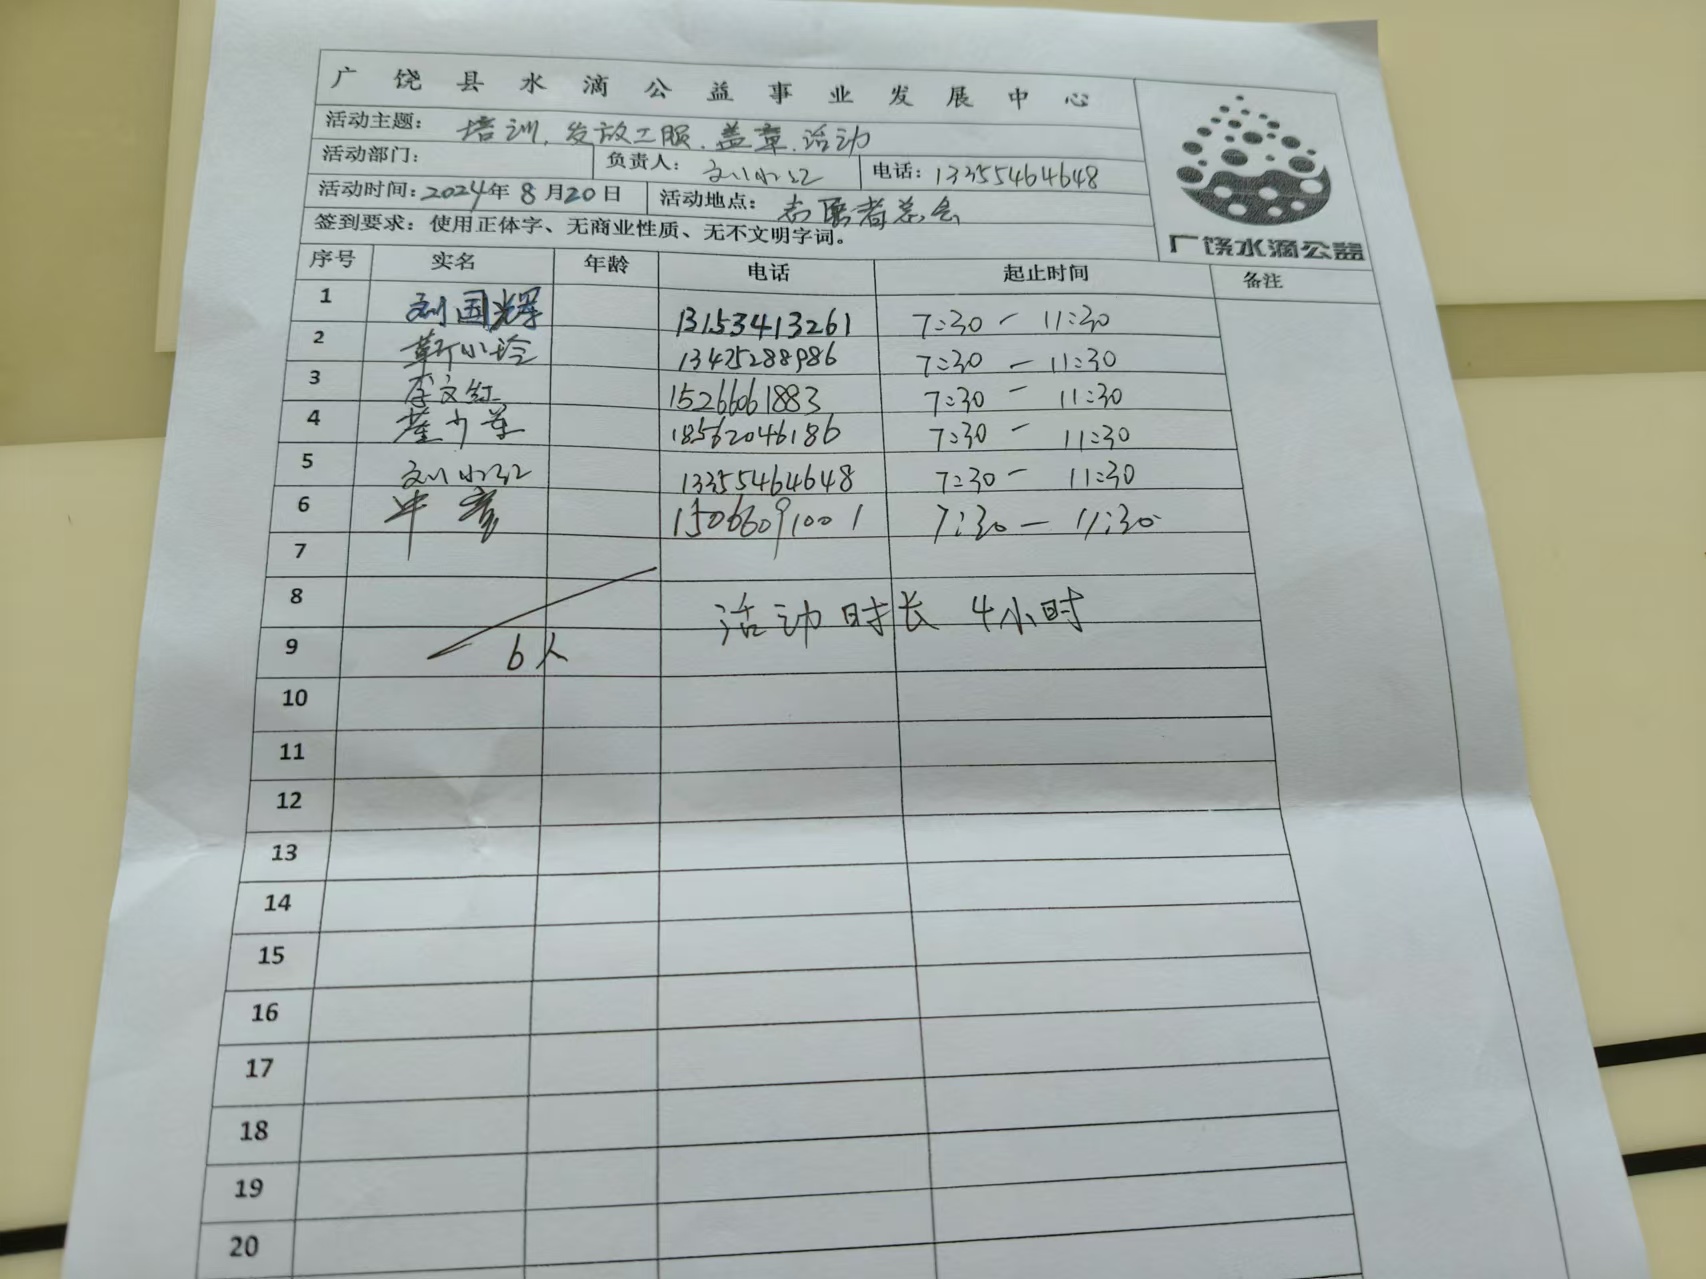 广饶县水滴公益事业发展中心
活动主题：培训、发放工服、盖章、活动
活动部门： 负责人：刘小江 电话：13355464648
活动时间：2024年8月20日 活动地点：志愿者总会
签到要求：使用正体字、无商业性质、无不文明字词。
广饶水滴公益
序号 实名 年龄 电话 起止时间 备注
1 刘国辉 13153413261 7:30 — 11:30
2 靳小玲 13475288986 7:30 — 11:30
3 李文红 15266061883 7:30 — 11:30
4 18562046186 7:30 — 11:30
5 刘小江 13355464648 7:30 — 11:30
6 15066091001 7:30 — 11:30
7
8 活动时长 4小时
9 6人
10
11
12
13
14
15
16
17
18
19
20